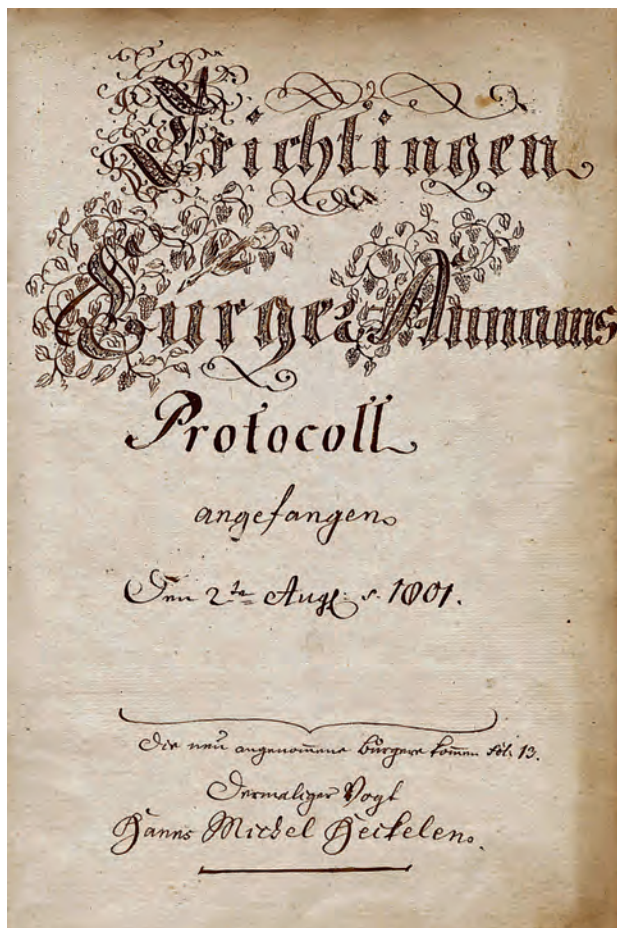 Trichtingen
Burger Annams
Protocoll
angefangen
Den 2te Aug: 1801.
Die neü angenomene Bürgere komen fol: 13.
Dermaliger Vogt
Hanns Michel Heckelen.